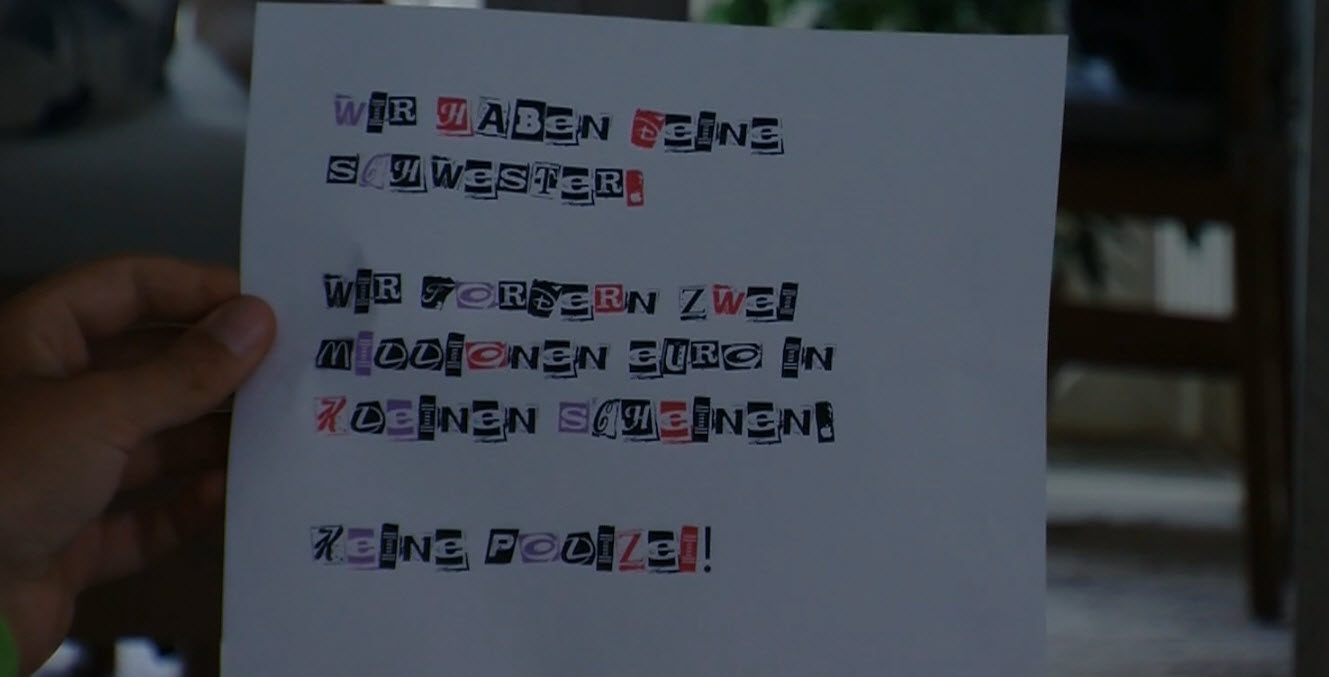 WIR HABEN DEINE
SCHWESTER.
WIR FORDERN ZWEI
MILLIONEN EURO IN
KLEINEN SCHEINEN.
KEINE POLIZEI!